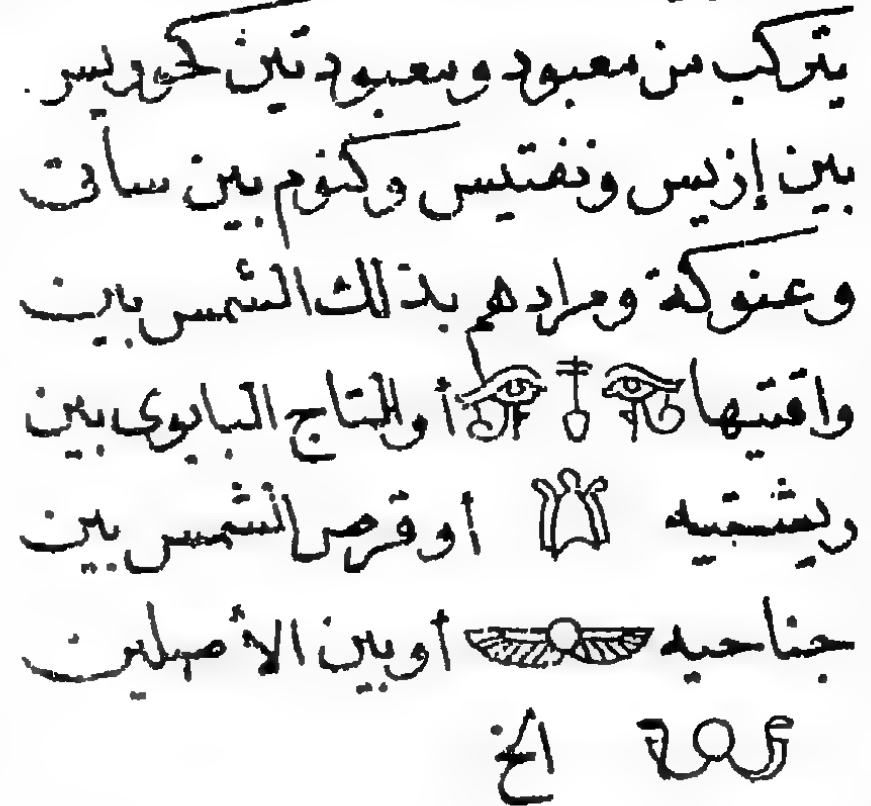 يتركب من معبود ومعبودتين كحوريس
بين إزيس ونفتيس وكنوم بين ساتى
وعنوكة ومرادهم بذلك الشمس بين
واقيتها أو التاج البابوى بين
ريشتيه أو قرص الشمس بين
جناحيه أو بين الأصلين
الخ